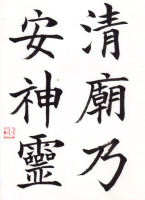 清廟乃
安神靈